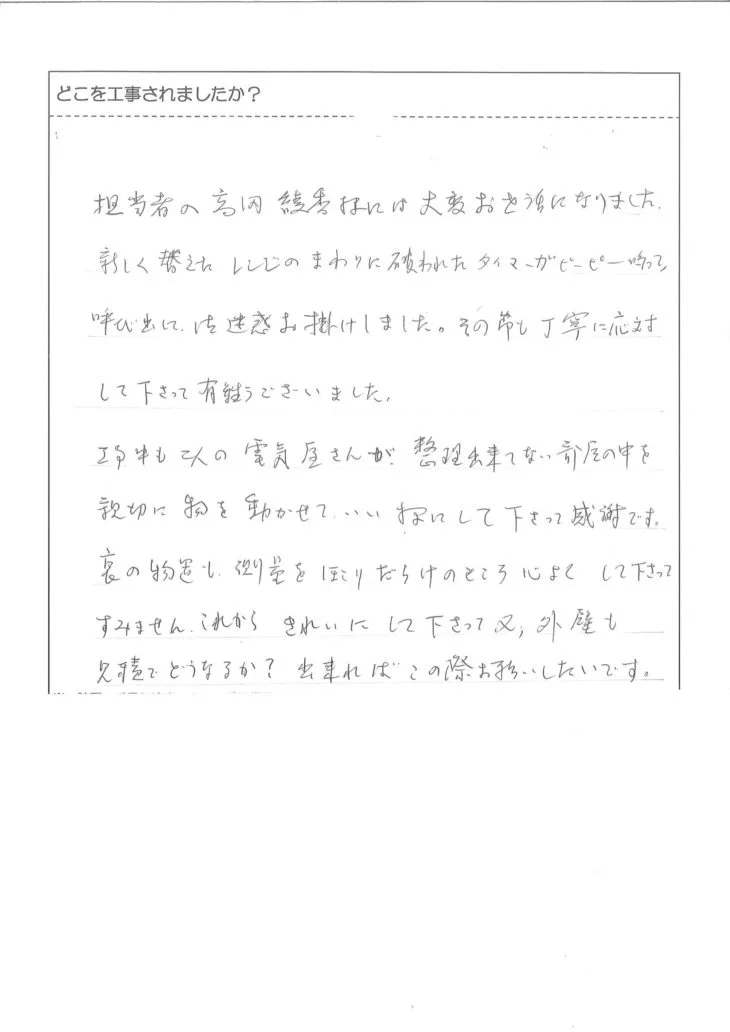 どこを工事されましたか？
担当者の高円綾香様には大変お世話になりました。
新しく替えたレンジのまわりに破われたタイマーがピーピー鳴って、
呼び出して、は迷惑お掛けしました。その節も丁寧に応対
して下さって有難うございました。
工事中も二人の電気屋さんが、整理出来てない部屋の中を
親切に物を動かせて、いい様にして下さって感謝です。
裏の物置も、測量をほこりだらけのところ心よくして下さって
すみません。これからきれいにして下さって又、外壁も
見積でどうなるか？出来ればこの際お願いしたいです。